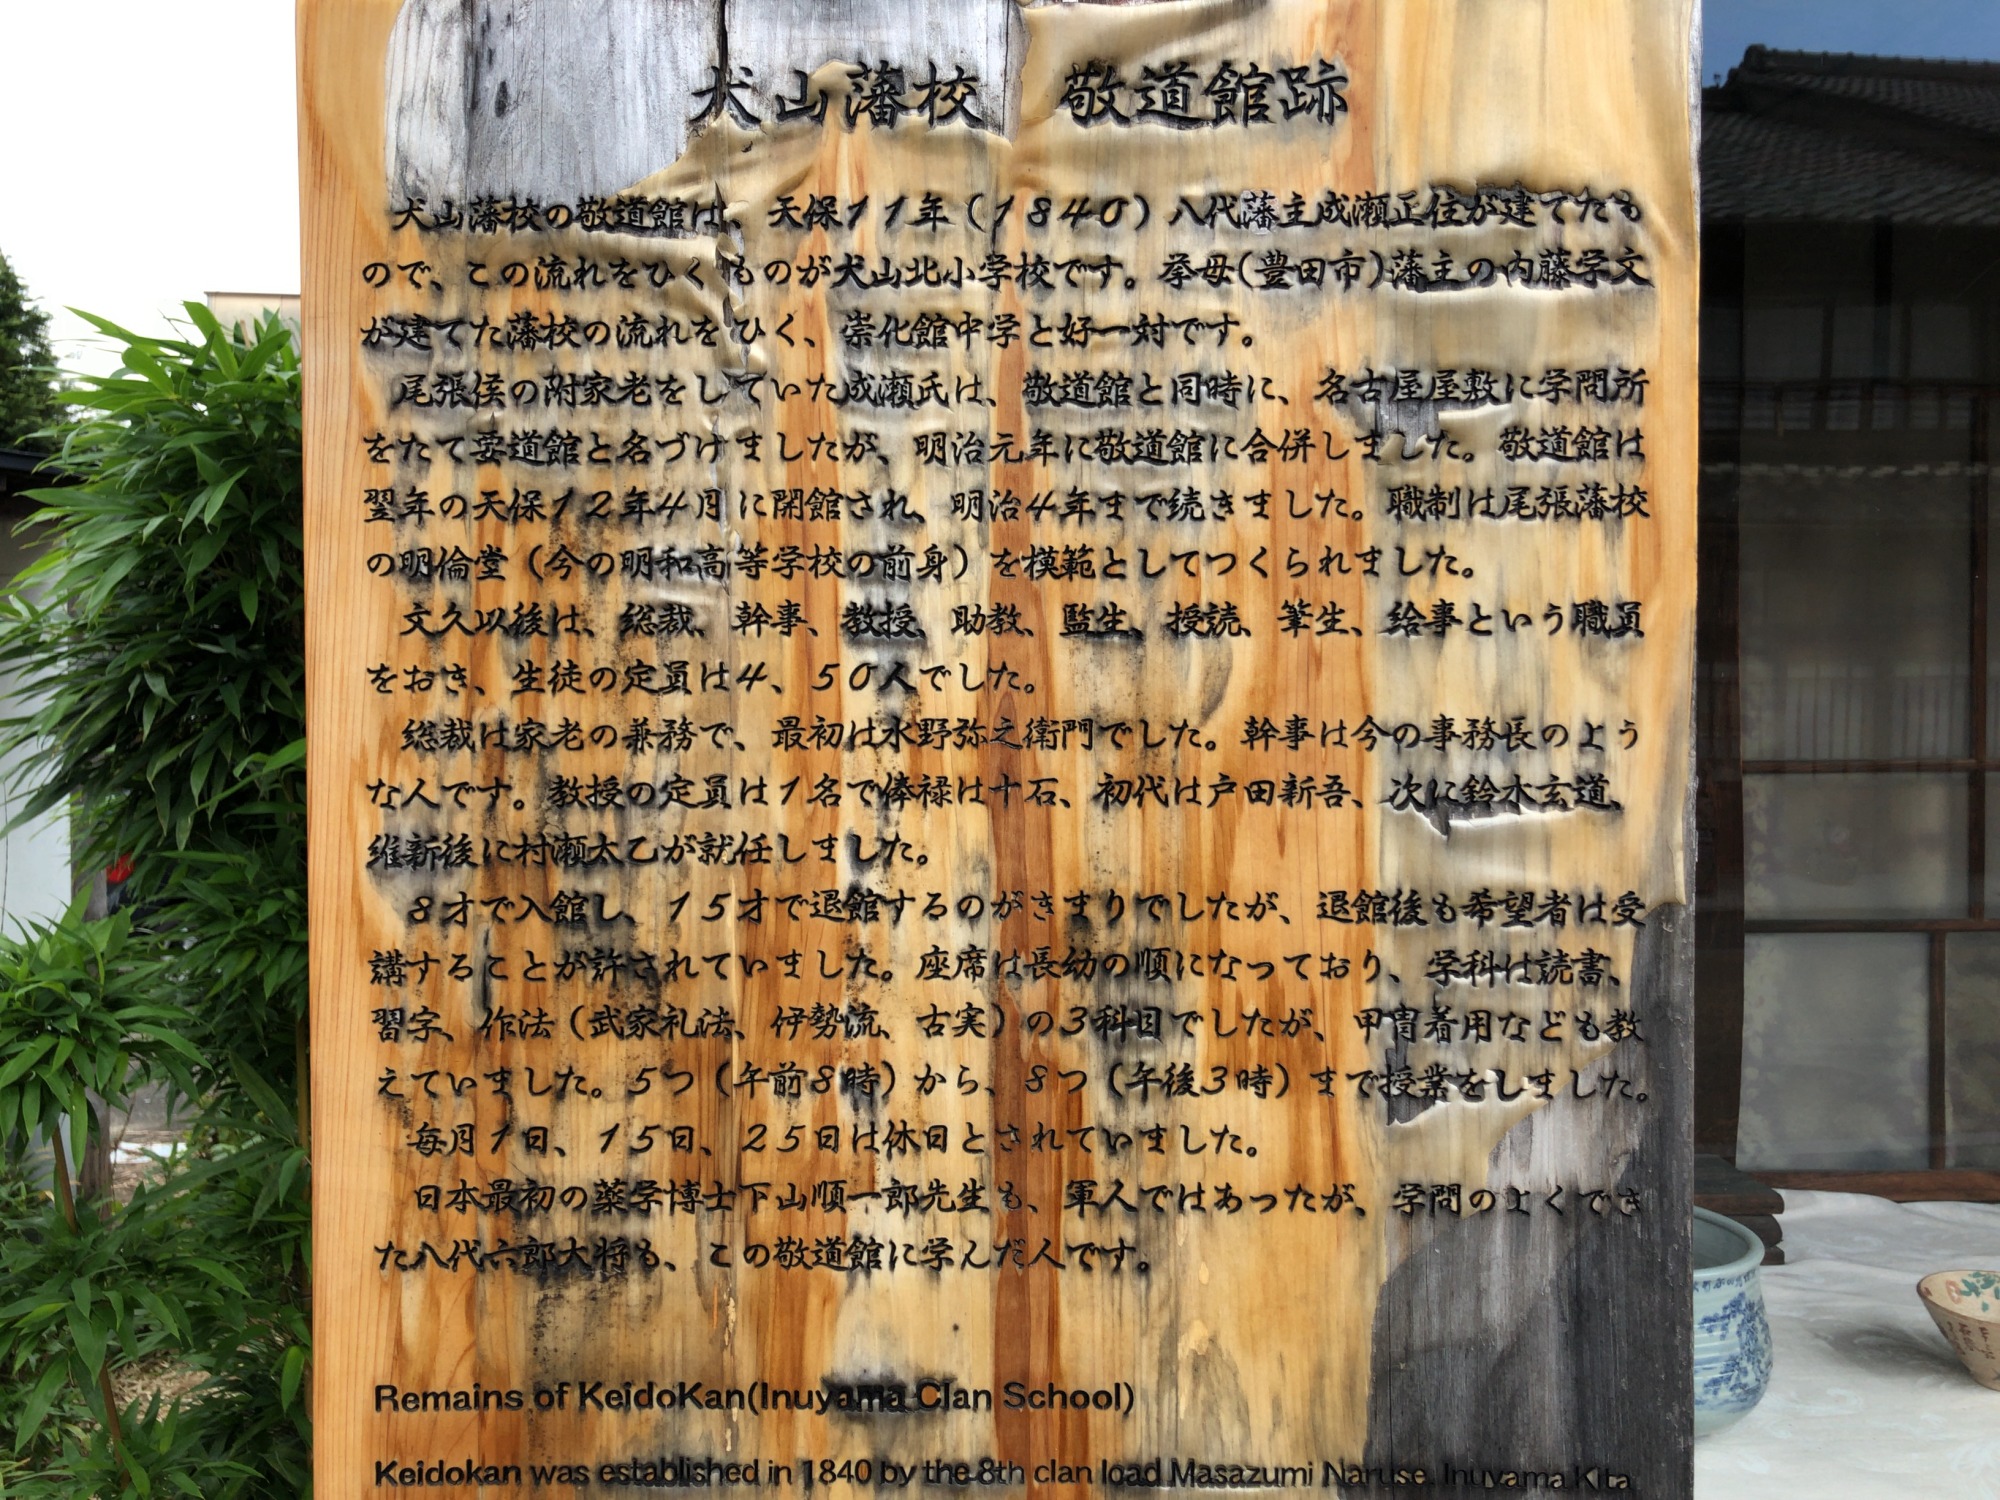 犬山藩校　敬道館跡
犬山藩校の敬道館は、天保11年（1840）八代藩主成瀬正住が建てたも
ので、この流れをひくものが犬山北小学校です。挙母（豊田市）藩主の内藤学文
が建てた藩校の流れをひく、崇化館中学と好一対です。
尾張侯の附家老をしていた成瀬氏は、敬道館と同時に、名古屋屋敷に学問所
をたて要道館と名づけましたが、明治元年に敬道館に合併しました。敬道館は
翌年の天保12年4月に開館され、明治4年まで続きました。職制は尾張藩校
の明倫堂（今の明和高等学校の前身）を模範としてつくられました。
文久以後は、総裁、幹事、教授、助教、監生、授読、筆生、給事という職員
をおき、生徒の定員は4、50人でした。
総裁は家老の兼務で、最初は水野弥之衛門でした。幹事は今の事務長のよう
な人です。教授の定員は1名で俸禄は十石、初代は戸田新吾、次に鈴木玄道、
維新後に村瀬太乙が就任しました。
8才で入館し、15才で退館するのがきまりでしたが、退館後も希望者は受
講することが許されていました。座席は長幼の順になっており、学科は読書、
習字、作法（武家礼法、伊勢流、古実）の3科目でしたが、甲冑着用なども教
えていました。5つ（午前8時）から、8つ（午後3時）まで授業をしました。
毎月1日、15日、25日は休日とされていました。
日本最初の薬学博士下山順一郎先生も、軍人ではあったが、学問のよくでき
た八代六郎大将も、この敬道館に学んだ人です。
Remains of KeidoKan(Inuyama Clan School)
Keidokan was established in 1840 by the 8th clan load Masazumi Naruse. Inuyama Kita